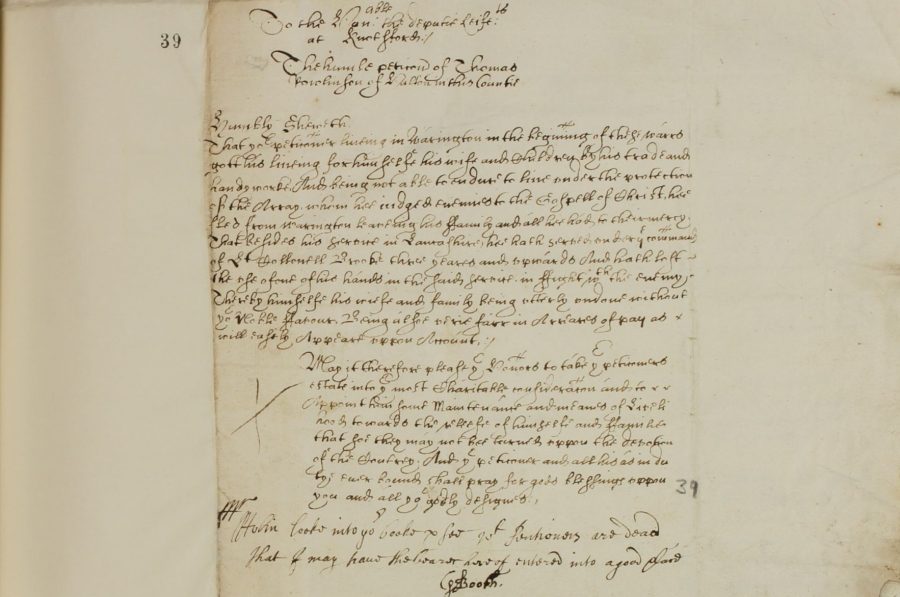 39
To the Hon:able the deputie Leife:ts
at Knotsford:/
The humle peticon of Thomas
Tomlinson of in this Countie
Humbly Sheweth
That yor petitioner liveing in Warington in the begining of these warrs
gott his liveing for himselfe his wife and Children by his trade and
handyworke. And being not able to endure to live under the protection
of the Array, whom hee iudged enemies to the Gospell of Christ, hee
fled from Warington leaveing his ffamily and all hee had, to their mercy.
That besides his service in Lancashire; hee hath served under ye command
of Lt Collonell Brooke three yeares and upwards And hath lost
the use of one of his hands in the said service. in ffight wth the enemy,
Thereby himselfe his wife and family being utterly undone without
yor Noble ffavour. Being alsoe verie farr in Arreares of pay as
will easily Appeare uppon Account,:/
May it therefore please yor Honors to take yor peticoners
estate into yor most Charitable consideration and to
Appoint him some Maintenance and meanes of Liveli
hood towards the releefe of himselfe and ffamilie
that soe they may not bee turned uppon the devotion
of the Contrey. And yor peticoner and all his as in du
ty ever bound, shall pray for gods blessings uppon
you and all yor godly designes.,
39
looke into yor booke & see yf Pentioners are dead
that I may have the entered into a good
G Booth.